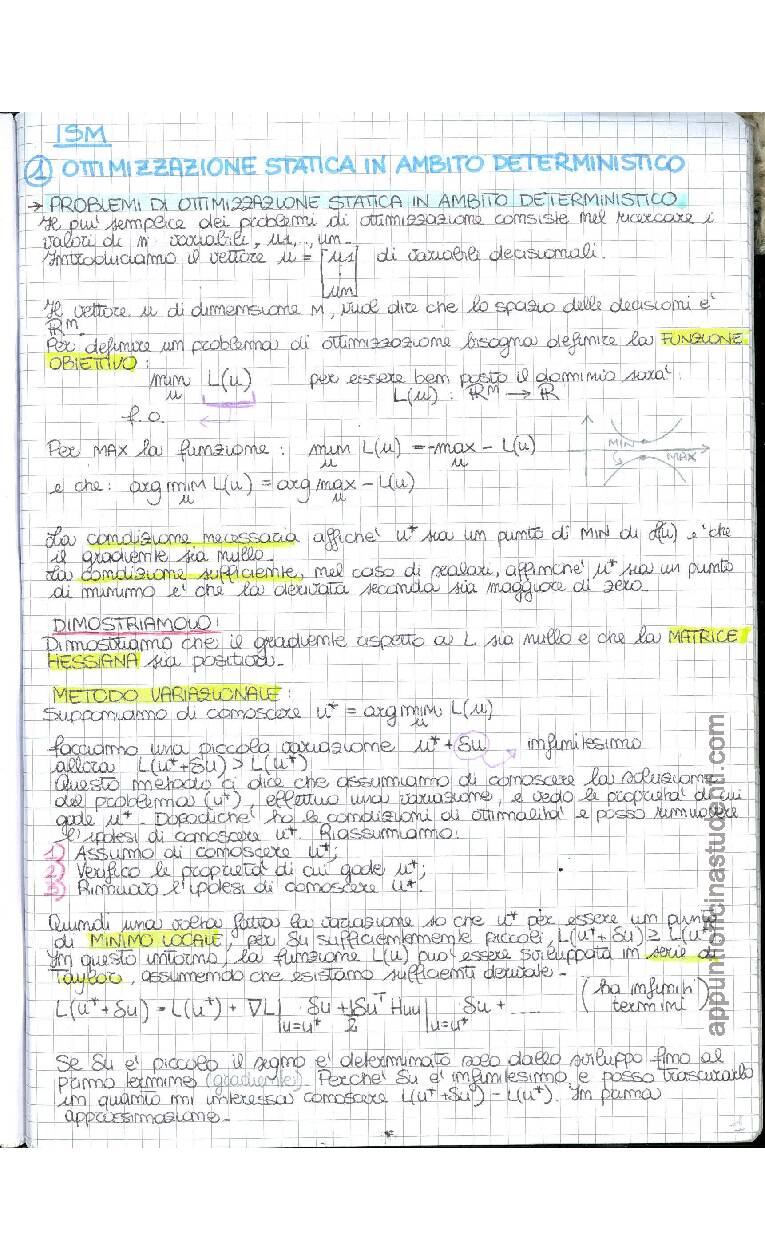 ISM
① OTTIMIZZAZIONE STATICA IN AMBITO DETERMINISTICO
→ PROBLEMI DI OTTIMIZZAZIONE STATICA IN AMBITO DETERMINISTICO
Il più semplice dei problemi di ottimizzazione consiste nel ricercare i
valori di m variabili, u1,..,um.
Introduciamo il vettore u = [u1 ⋮ um] di variabili decisionali.
Il vettore u di dimensione M, vuol dire che lo spazio delle decisioni e'
ℝᴹ.
Per definire un problema di ottimizzazione bisogna definire la FUNZIONE
OBIETTIVO:
min L(u) per essere ben posto il dominio sara':
u L(u) : ℝᴹ → ℝ
f.o.
Per MAX la funzione : min L(u) = -max - L(u)
u u
MIN
MAX
e che: arg min L(u) = arg max - L(u)
u u
La condizione necessaria affiche' u* sia un punto di MIN di L(u) e' che
il gradiente sia nullo.
La condizione sufficiente, nel caso di scalari, affinche' u* sia un punto
di minimo e' che la derivata seconda sia maggiore di zero.
DIMOSTRIAMOLO:
Dimostriamo che il gradiente rispetto a L sia nullo e che la MATRICE
HESSIANA sia positiva.
METODO VARIAZIONALE:
Supponiamo di conoscere u* = arg min L(u)
u
facciamo una piccola variazione u* + δu infinitesimo
allora L(u*+δu) > L(u*)
Questo metodo ci dice che assumiamo di conoscere la soluzione
del problema (u*), effettuo una variazione, e vedo le proprieta' di cui
gode u*. Dopodiche' ho le condizioni di ottimalita' e posso rimuovere
l'ipotesi di conoscere u*. Riassumiamo:
1) Assumo di conoscere u*;
2) Verifico le proprieta' di cui gode u*;
3) Rimuovo l'ipotesi di conoscere u*.
Quindi una volta fatta la variazione so che u* per essere un punto
di MINIMO LOCALE, per δu sufficientemente piccoli, L(u*+δu) ≥ L(u*)
In questo intorno, la funzione L(u) puo' essere sviluppata in serie di
Taylor, assumendo che esistano sufficienti derivate.
L(u*+δu) = L(u*) + ∇L|u=u* δu + 1/2 δuᵀ Huu|u=u* δu + ...... (ha infiniti termini)
Se δu e' piccolo il segno e' determinato solo dallo sviluppo fino al
primo termine (gradiente). Perche' δu e' infinitesimo e posso trascurarlo
in quanto mi interessa conoscere L(u*+δu) - L(u*). In prima
approssimazione.
1
appuntiofficinastudenti.com